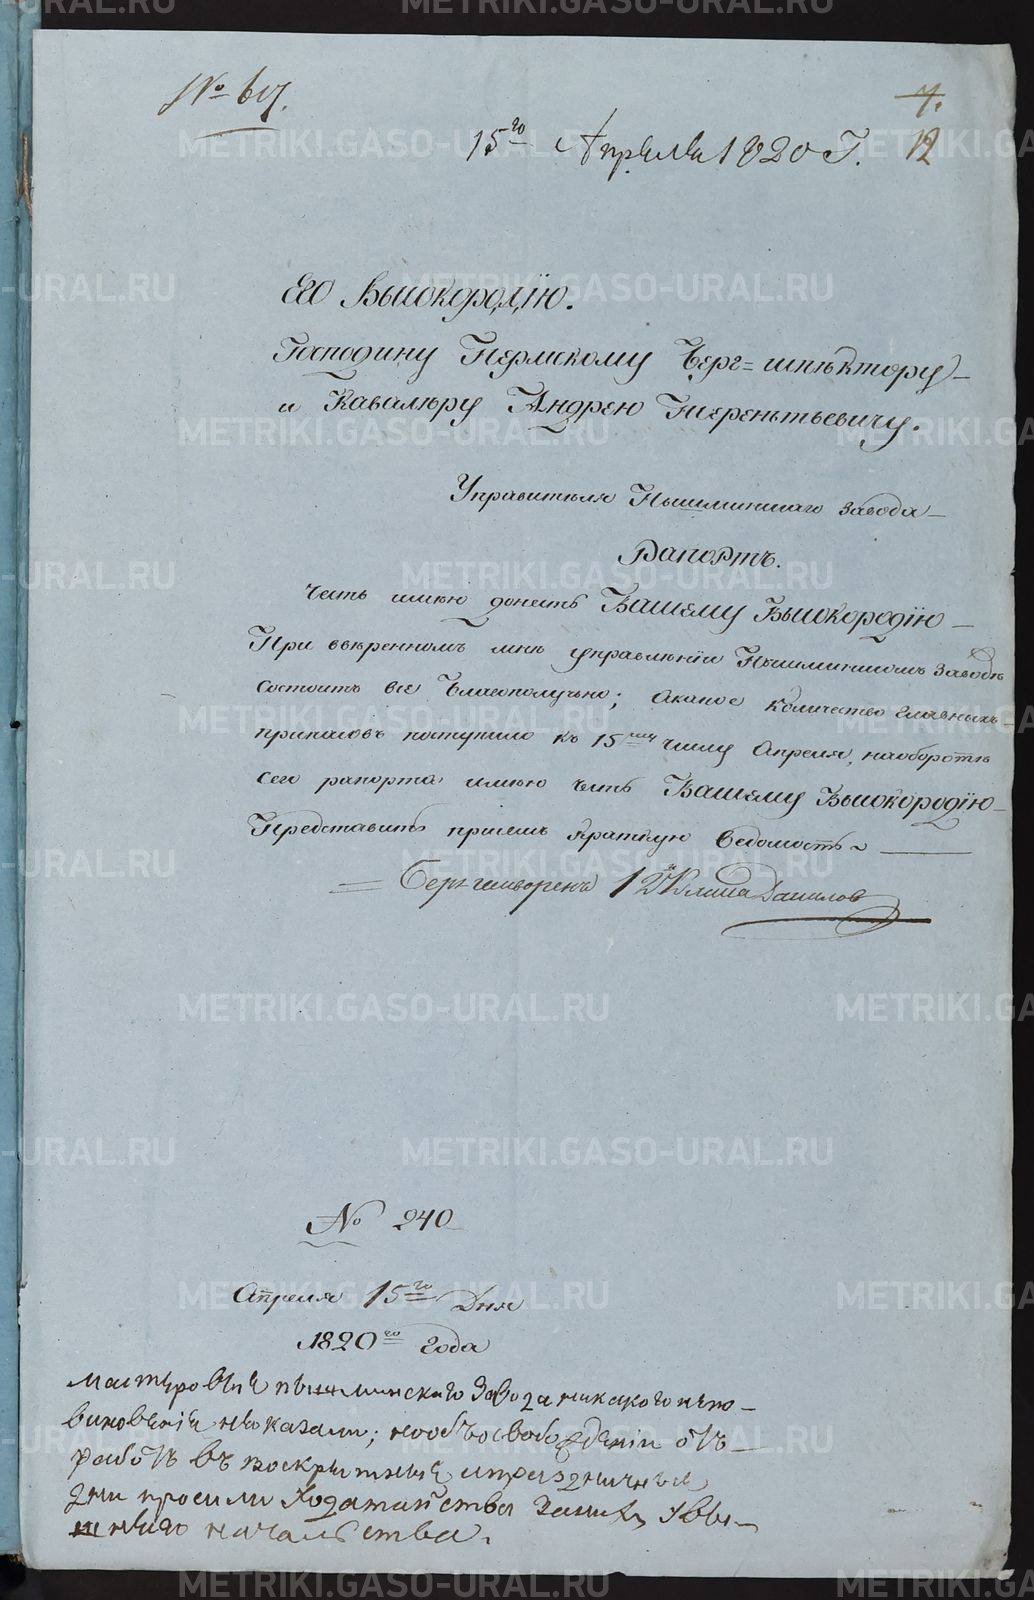 № 617.
7.
12
15го Апреля 1820 Г.
Его Высокородію.
Господину Пермскому Берг=инспектору
и Кавалеру Андрею Терентьевичу.
Управителя Пышминскаго завода
Рапортъ.
Честь имею донесть Вашему Высокородію
При вверенномъ мне управленіи Пышминскомъ заводе
состоитъ все благополучно; Акакое количество главныхъ
припасовъ поступило къ 15му числу Апреля, наоборотe
сего рапорта имею честь Вашему Высокородію
Представить присемъ краткую Ведомость
Бергешворенъ 12й Класса Данилов
№ 240
Апреля 15го Дня
1820го года
мастеровые пышминского завода никакого непо-
виновения неоказали; нообъосвобождении отъ
работъ въ воскрытные ипраздничные
дни просили ходатайства заних увы-
шняго начальства.
METRIKI.GASO-URAL.RU